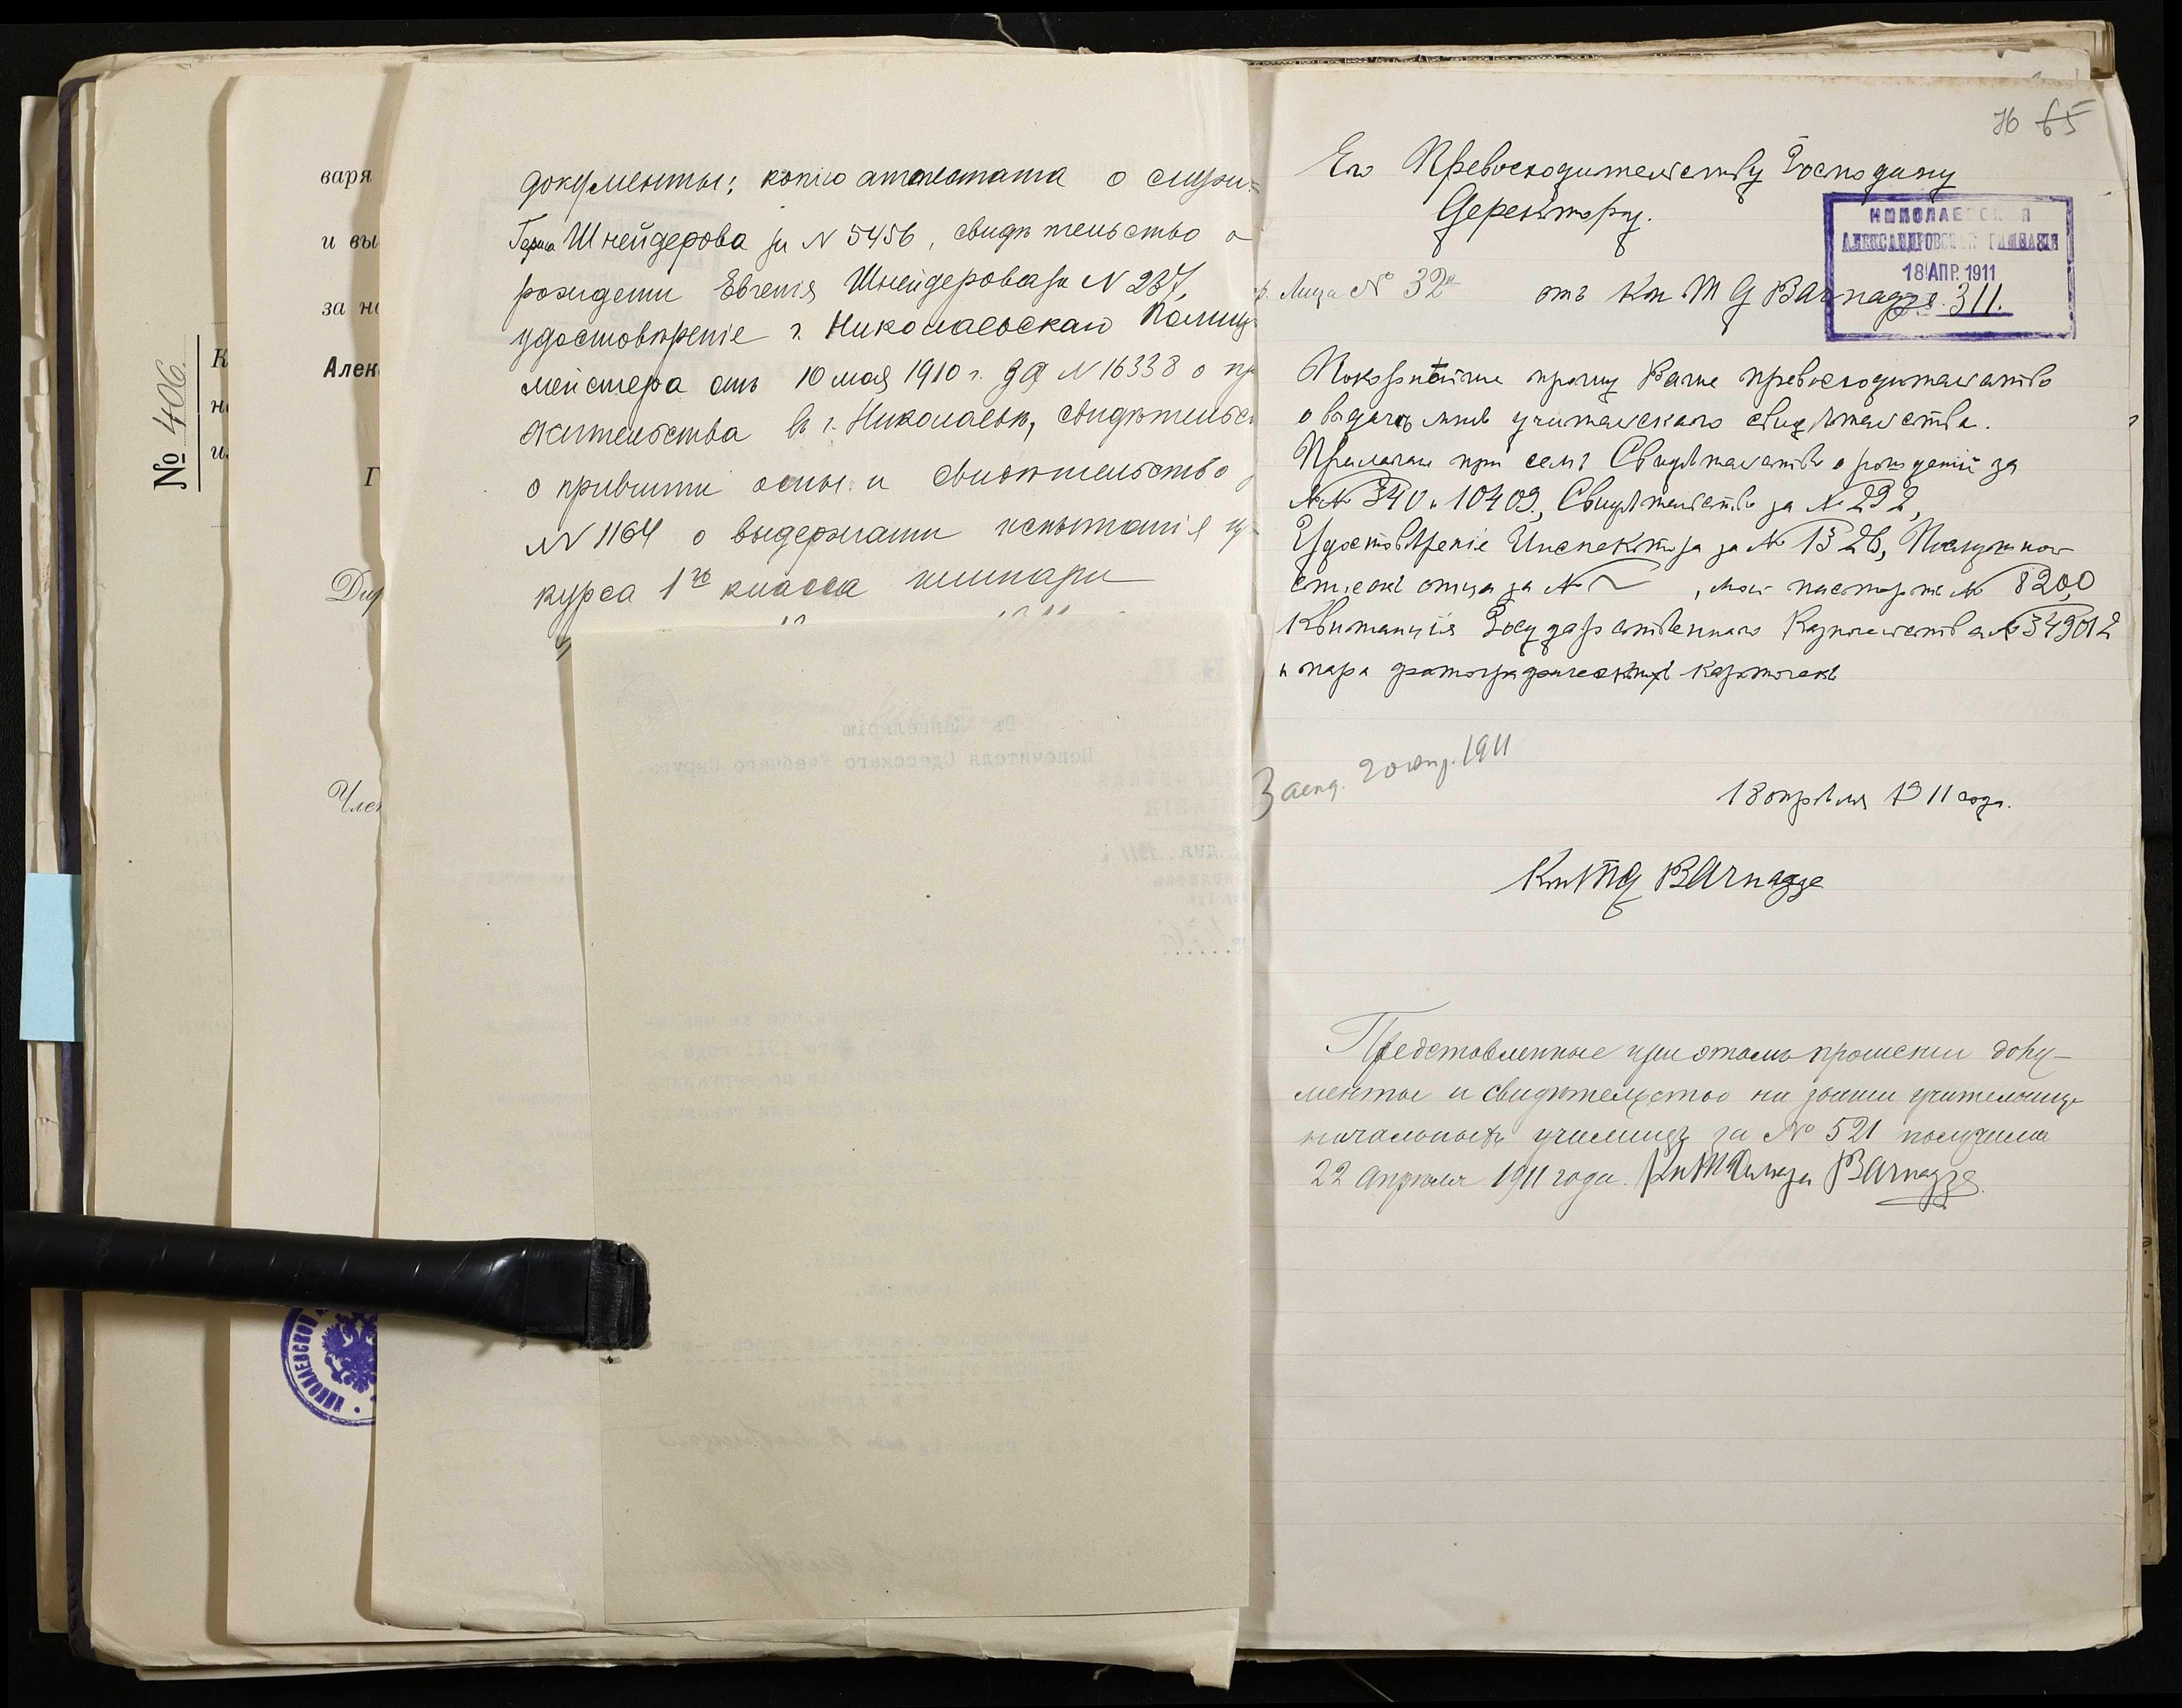 варя
и вы
за не
Алек
№ 406.
Дир
Член
документы: копію аттестата о служ=
Шнейдерова за N 5456, свидѣтельство о
рождении Евгенія Шнейдерова за N 237,
удостовѣреніе г. Николаевскаго Полиц-
мейстера отъ 10 мая 1910 г. за N 16338 о пр
жительства въ г. Николаевѣ, свидѣтельс
о привитіи оспы и свидѣтельство
N 1164 о выдержаніи испытанія
курса 1го класса гимназіи
36 65
Его Превосходительству Господину
Деректору.
НИКОЛАЕВСКАЯ
АЛЕКСАНДРОВСКАЯ ГИМНАЗІЯ
18 АПР. 1911
311.
№ 32 отъ Кн М Д Варнадзе
Покорнѣйше прошу Ваше превосходительство
о выдачѣ мнѣ учительскаго свидѣтельства.
Прилагаю при семъ Свидѣтельство о рождении за
№№ 340 и 10409, Свидѣтельство за № 292,
Удостовѣреніе Инспектора за № 1326, Послужной
списокъ отца за № , мой паспортъ № 8200
Квитанція Государственнаго Казначейства № 349012
и пара фотографическихъ карточекъ
20 апр. 1911
18 апрѣля 1911 года.
Варнадзе
Представленные при этомъ прошении доку-
менты и свидѣтельство на званіе учительницы
начальныхъ училищъ за № 521 получила
22 Апрѣля 1911 года. Варнадзе.